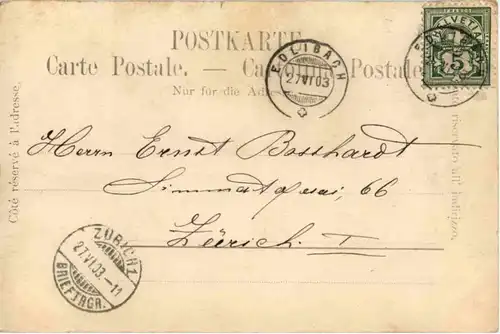 POSTKARTE
Carte Postale. — Postale
Nur für die
Côté réservé à l'adresse.
riservato all' indirizzo.
EDLIBACH
27.VI.03
HELVETIA
5
Herrn Ernst Bosshardt
Limmatquai, 66
Zürich I
ZÜRICH 1
27.VI.03.-11
BRIEFTRGR.